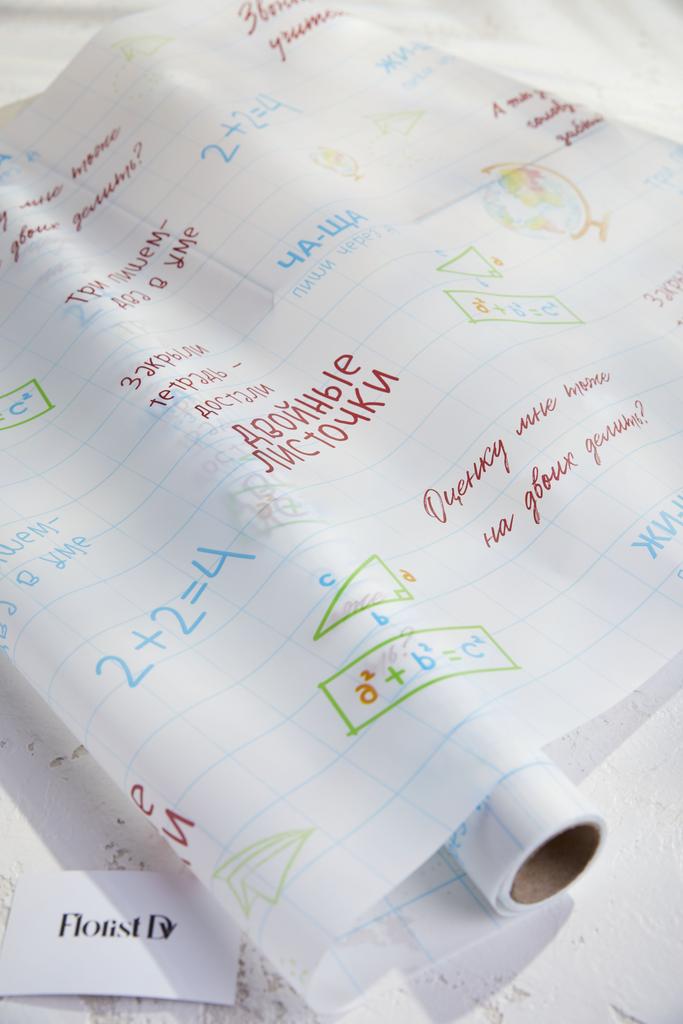 2+2=4
ЖИ-
А ты
голову
мне тоже
двоих делить?
ТРИ ПИШЕМ-
ДВА В УМЕ
ЧА-ЩА
ПИШИ ЧЕРЕЗ А
a² + b² = c²
ЗАКРЫЛИ
ТЕТРАДЬ -
ДОСТАЛИ
ДВОЙНЫЕ
ЛИСТОЧКИ
Оценку мне тоже
на двоих делить?
c²
ЖИ-
В УМЕ
2+2=4
c
a
b
a² + b² = c²
Florist Dv